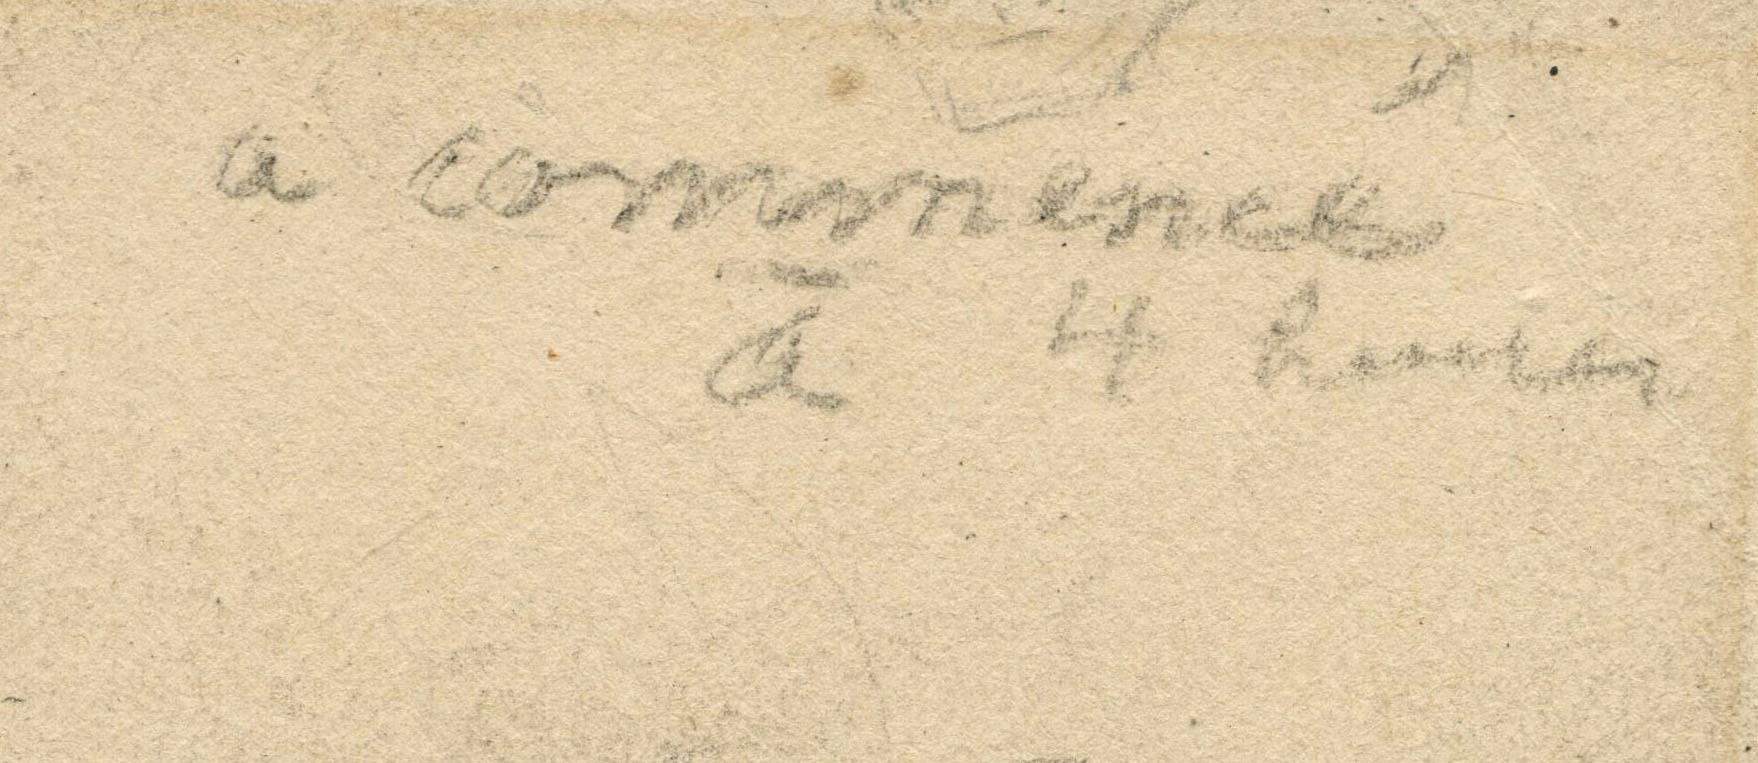 a commencé
à 4 heures